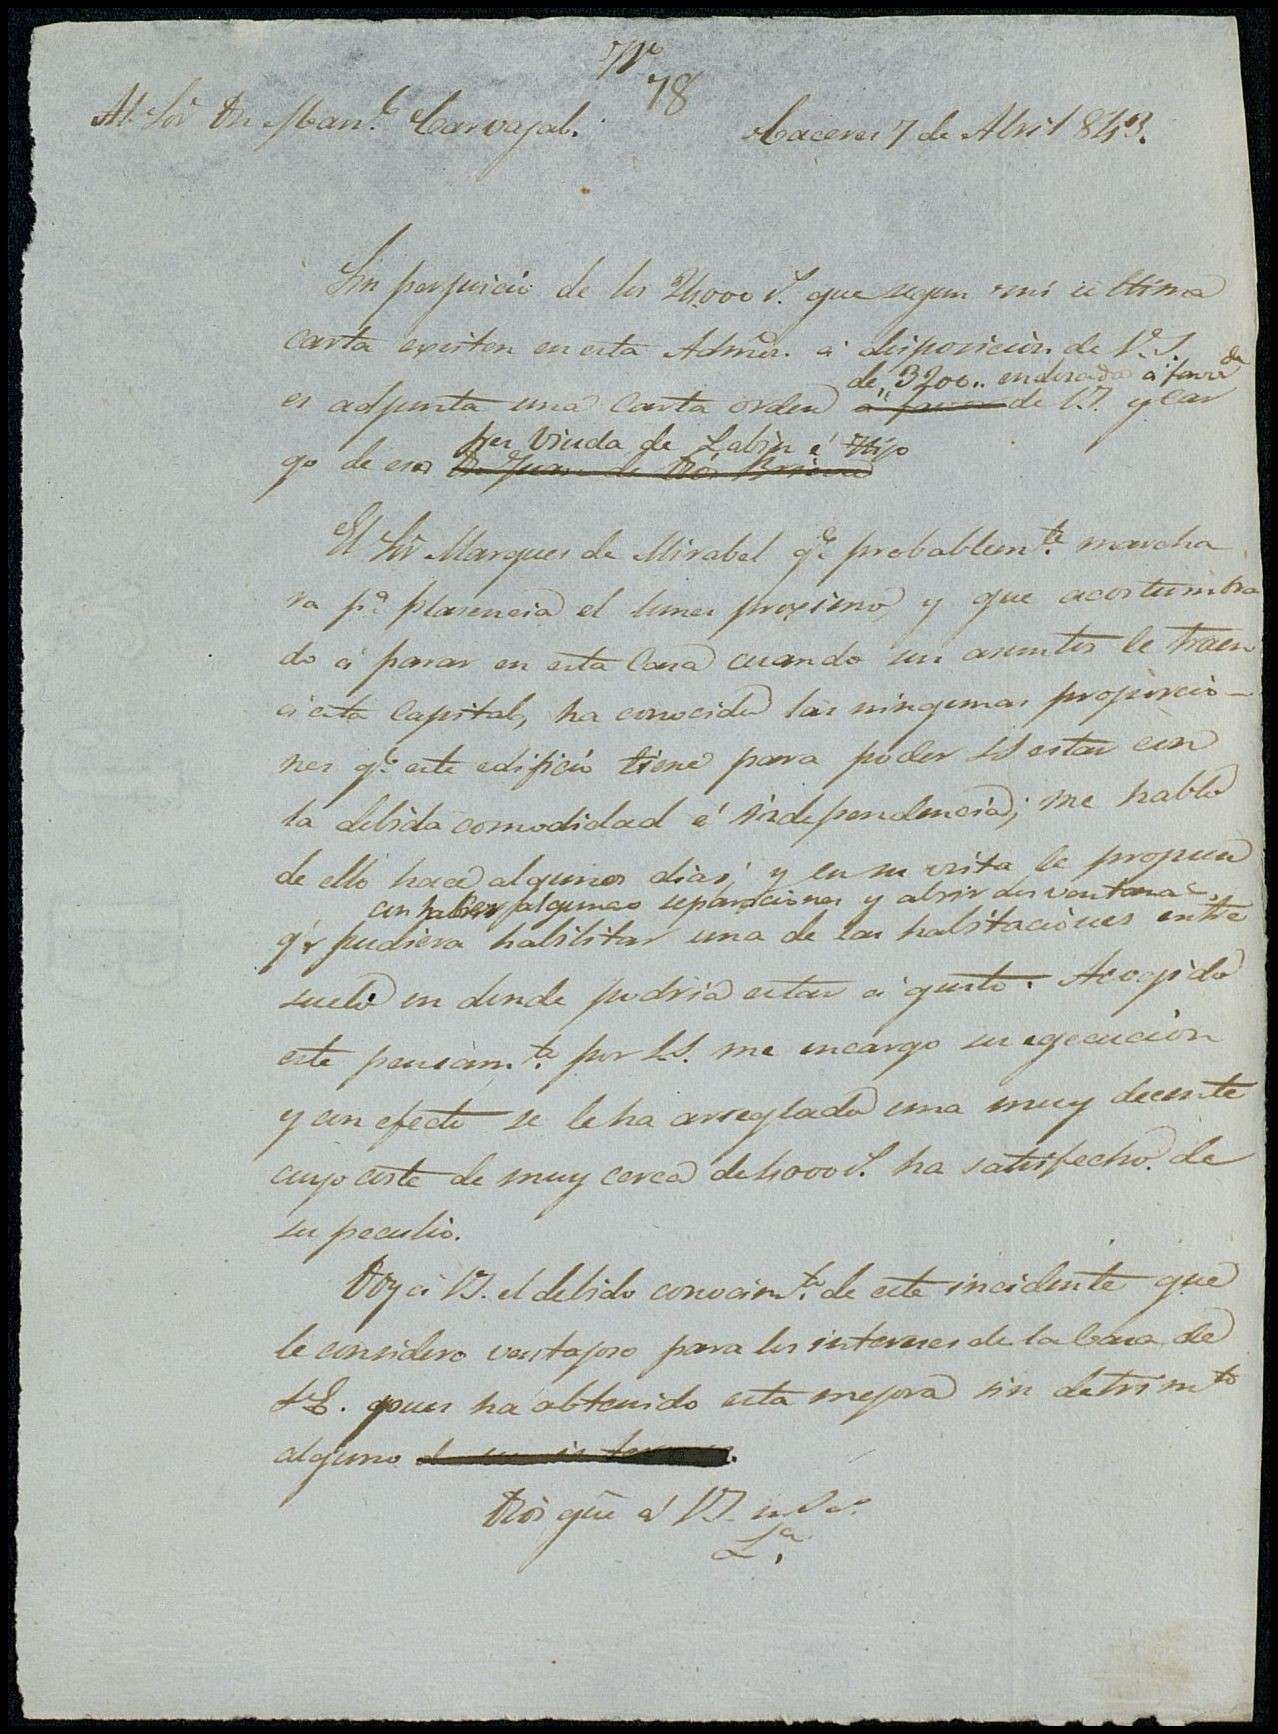 Nº
78
Al Sór Dn Man.l Carvajal.
Caceres 7 de Abril 843.
Sin perjuicio de los 24.000 r.s que segun mi ultima
carta existen en esta Admon. á disposicion de V.S.
de 3200.. endosada á favor
es adjunta una carta orden á favor de V.S. y car
go de esos
por Viuda de Labin é Hijo
El Sór Marques de Mirabel q.e probablem.te marcha
ra p.a Plasencia el lunes proximo, y que acostumbra
do á parar en esta Casa cuando sus asuntos le traen
á esta Capital, ha conocido las ningunas proporcio-
nes q.e este edificio tiene para poder SS estar con
la debida comodidad é independencia; me habló
de ello hace algunos dias; y en su vista le propuse
con haber algunas separaciones y abrir dos ventanas,
q.e pudiera habilitar una de las habitaciones entre
suelo en donde podria estar á gusto. Acogido
este pensam.to por S.S. me encargo su egecucion
y con efecto se le ha arreglado una muy decente
cuyo coste de muy cerca de 4000 r.s ha satisfecho de
su peculio.
Doy á V.S. el debido conocim.to de este incidente que
le considero ventajoso para los intereses de la Casa de
S.E. pues ha obtenido esta mejora sin detrim.to
alguno
Dios gue á V.S. m.s a.s
L.a